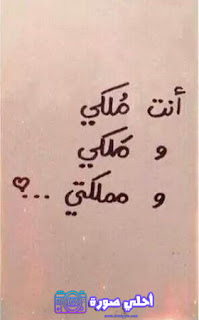 أنت مُلكي
و مَلكي
و مملكتي ...
أحلي صورة